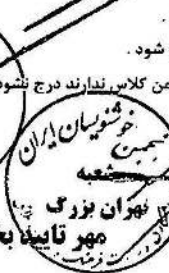 شود .
من کلاس ندارند درج نشود
انجمن خوشنویسان ایران
شعبه
تهران بزرگ
مهر تایید